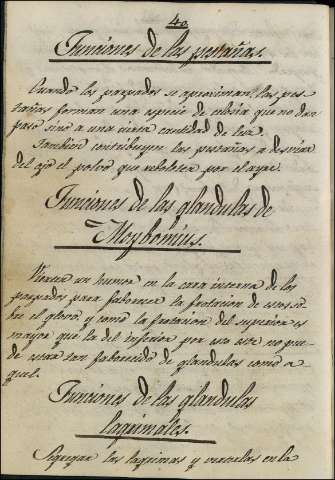 40
Funciones de las pestañas.
Cuando los parpados se aproximan, las pes-
tañas forman una especie de celosia que no dan
paso sino a una cierta cantidad de luz.
Tambien contribuyen las pestañas a desviar
del ojo el polvo que rebolotea por el ayre.
Funciones de las glandulas de
Meybomius.
Vierten un humor en la cara interna de los
parpados para faborecer la frotacion de estos so-
bre el globo, y como la frotacion del superior es
mayor que la del inferior por eso este no pue-
de estar tan faborecido de glandulas como a-
quel.
Funciones de las glandulas
lagrimales.
Segregar las lagrimas y verterlas en la